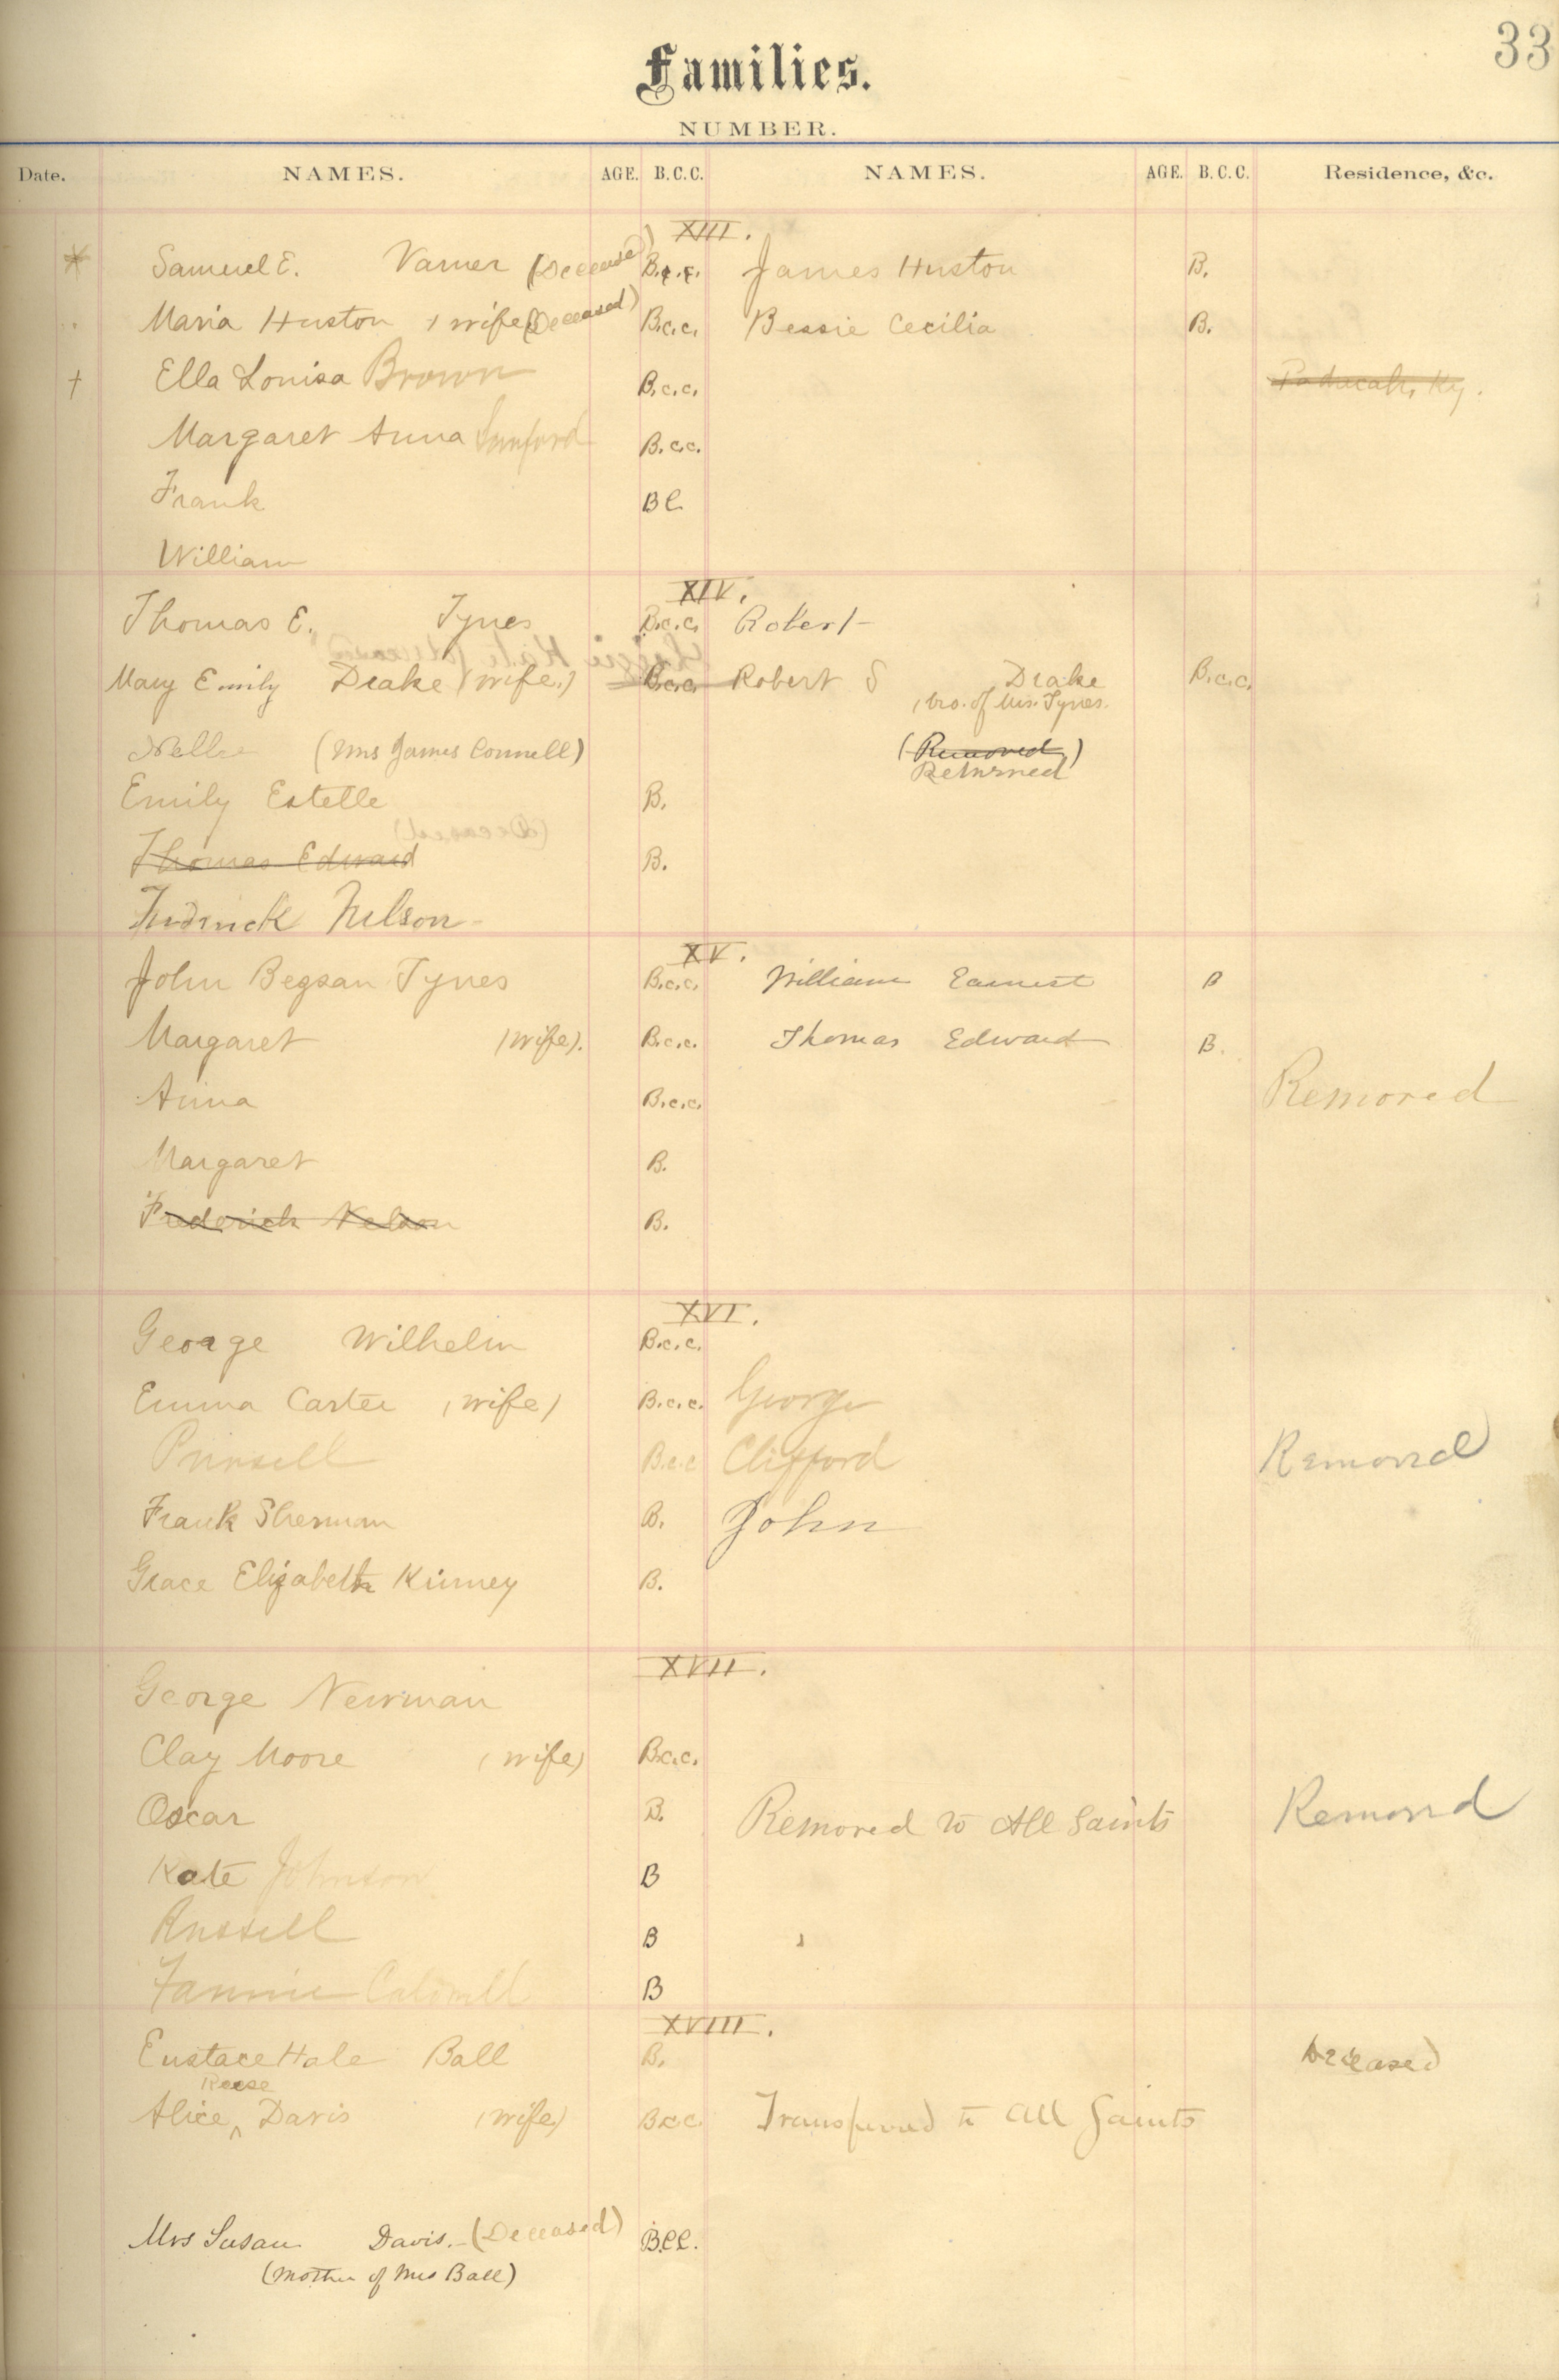 33
Families.
NUMBER.
Date. NAMES. AGE. B.C.C. NAMES. AGE. B.C.C. Residence, &c.
XIII.
Samuel E. Varner (Deceased) B.c.c. James Huston B.
Maria Huston (wife) (Deceased) B.c.c. Bessie Cecilia B.
† Ella Louisa Brown B.c.c. Paducah, Ky.
Margaret Anna Sanford B.c.c.
Frank BC
William
XIV.
Thomas E. Tynes B.c.c. Robert
Mary Emily Drake (wife.) B.c.c. Robert S Drake B.c.c.
(bro. of Mrs. Tynes.
Nellie (Mrs James Connell) (Removed)
Returned
Emily Estelle B.
Thomas Edward B.
Fredrick Nelson
XV.
John Begsan Tynes B.c.c. William Earnest B
Margaret (wife). B.c.c. Thomas Edward B.
Anna B.c.c. Removed
Margaret B.
Frederick Nelson B.
XVI.
George Wilhelm B.c.c.
Emma Carter (wife) B.c.c. George
B.c.c Clifford Removed
Frank Sherman B. John
Grace Elizabeth Kinney B.
XVII.
George Newman
Clay Moore (wife) B.c.c.
Oscar B. Removed to All Saints Removed
Kate Johnson B
Russell B
Fannie B
XVIII.
Eustace Hale Ball B. Deceased
Reese
Alice ^ Davis (wife) B.c.c. Transferred to All Saints
Mrs Susan Davis. (Deceased) B.C.C.
(Mother of Mrs Ball)